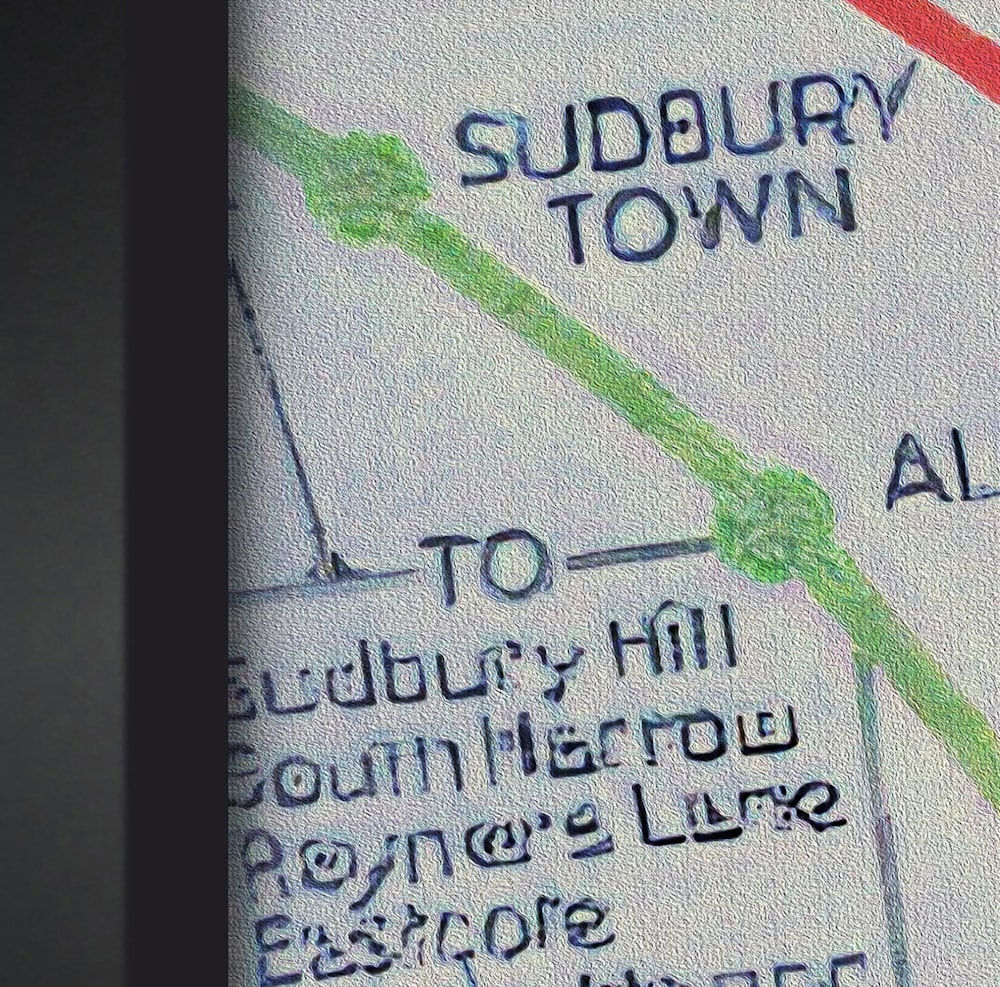 SUDBURY
TOWN
AL
TO
Sudbury Hill
South Harrow
Rayner's Lane
Eastcote